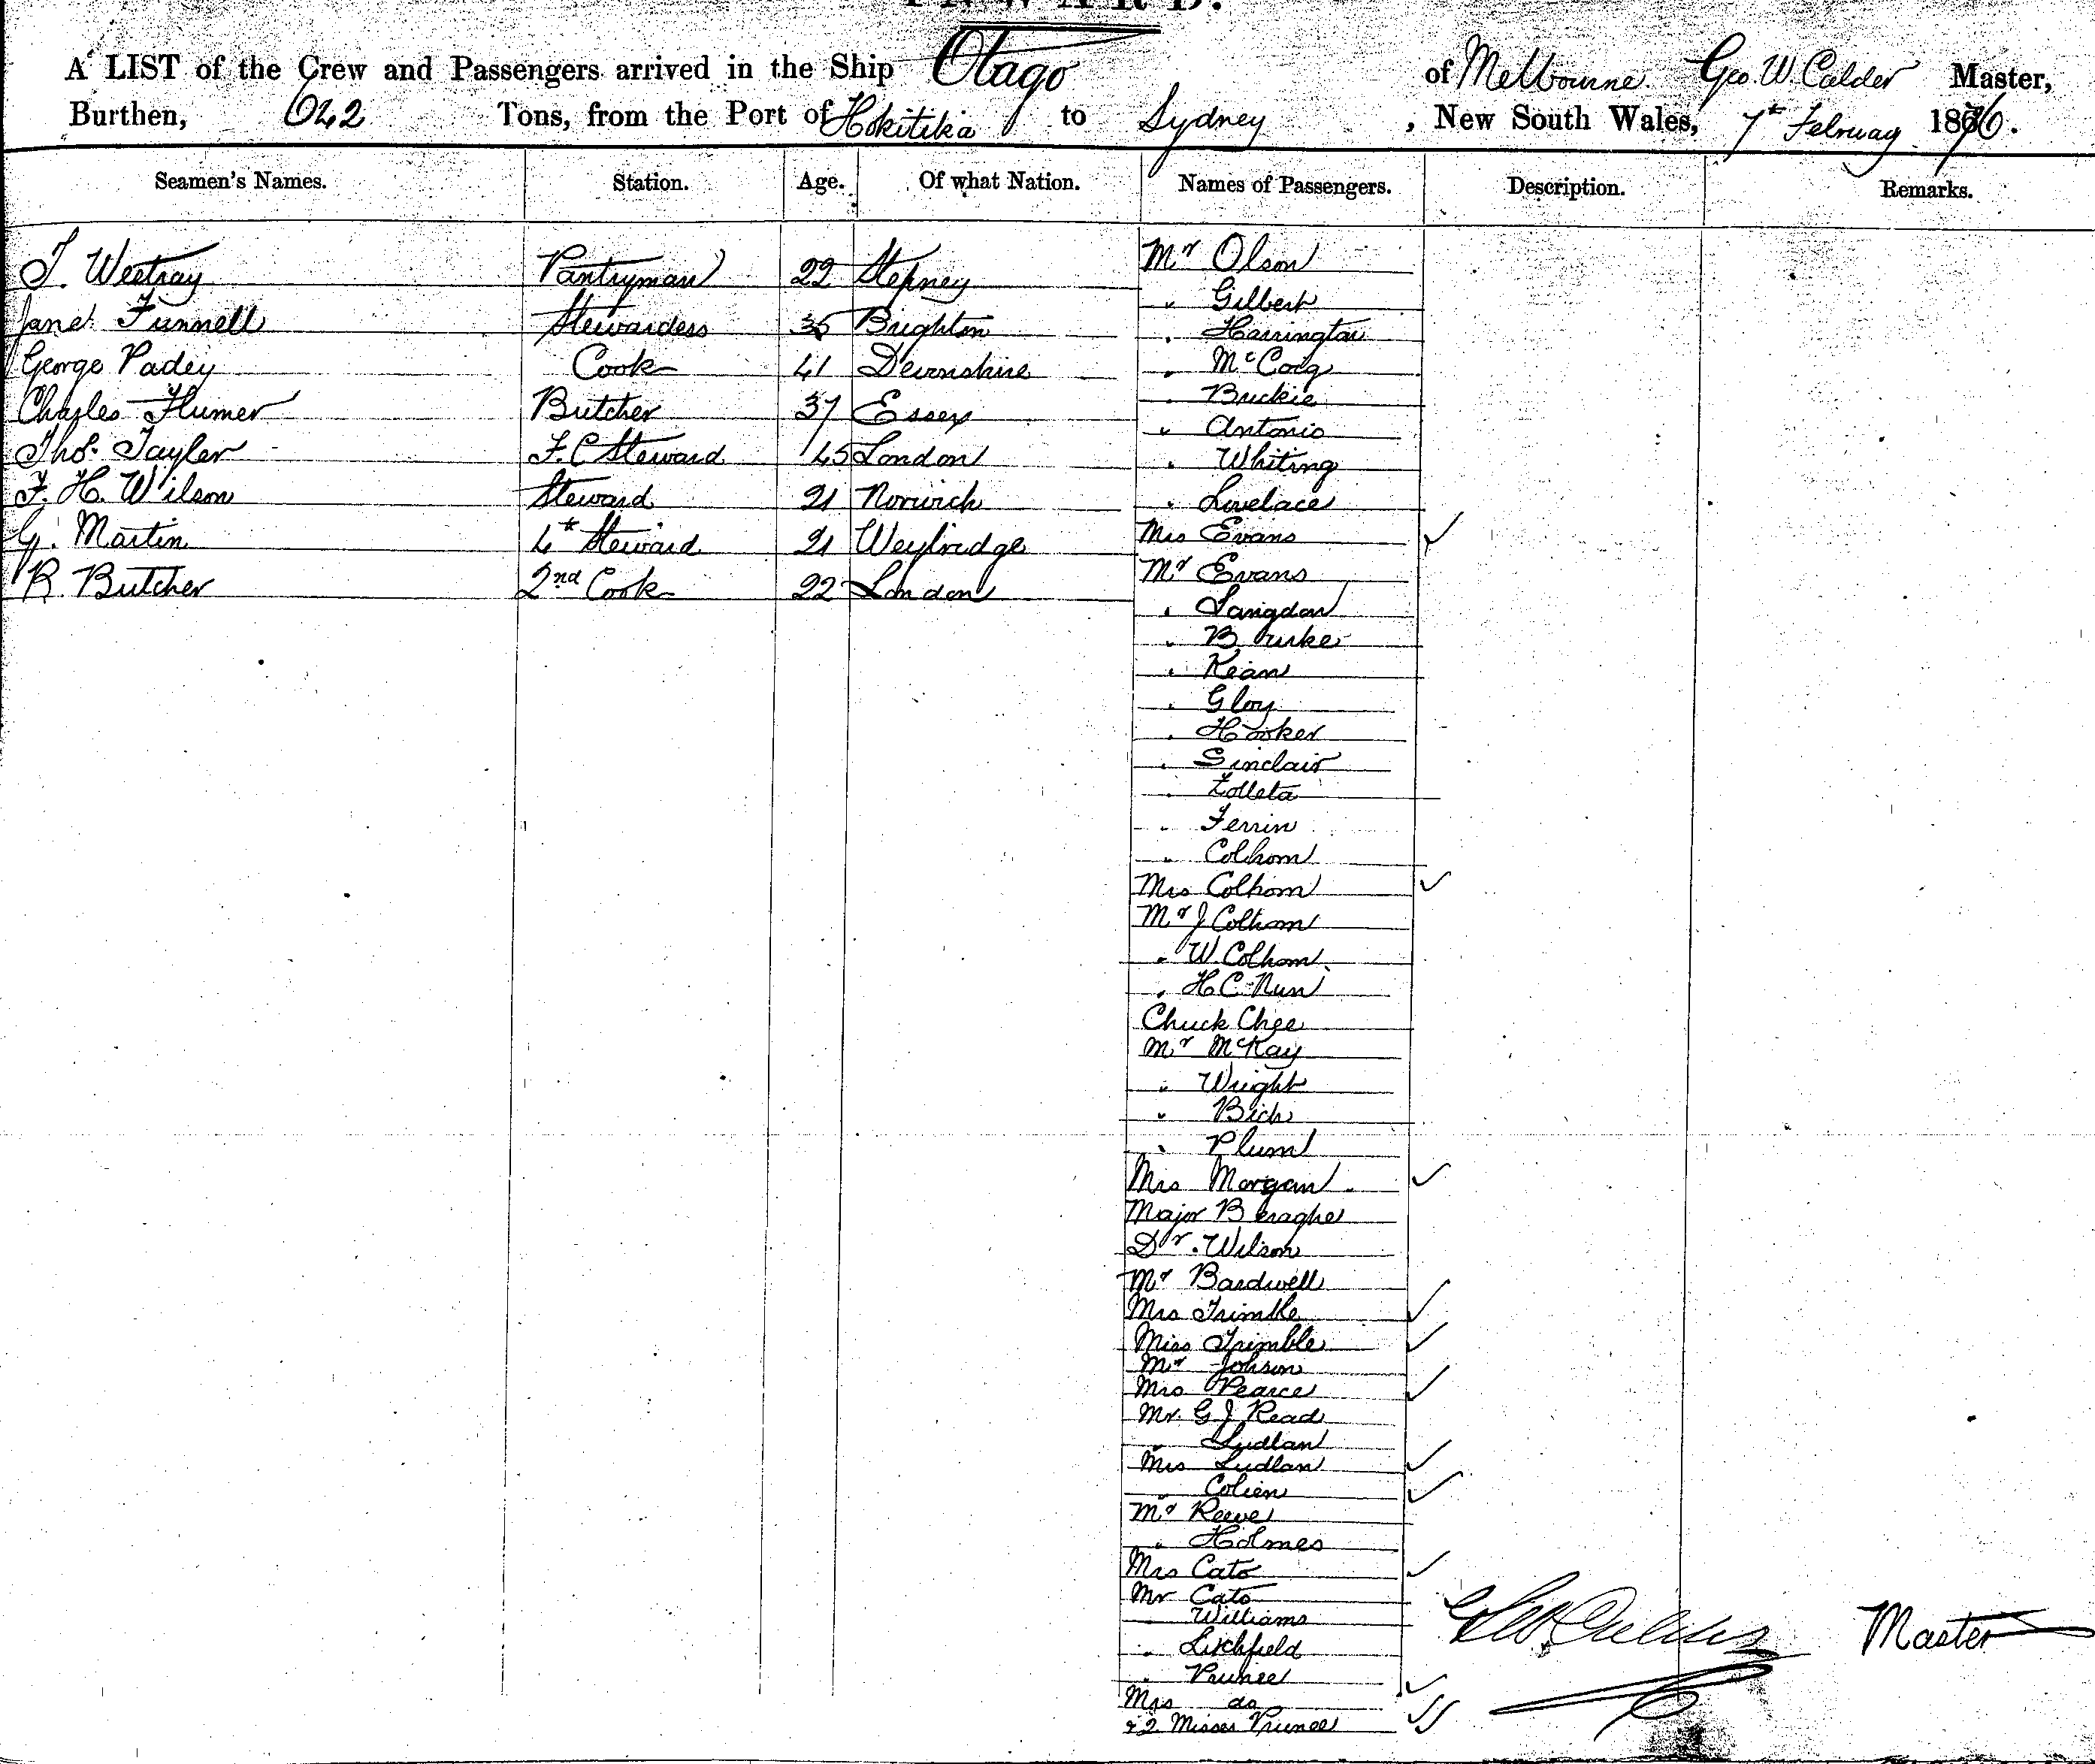 INWARD.
A LIST of the Crew and Passengers arrived in the Ship Otago of Melbourne. Geo. W. Calder Master,
Burthen, 642 Tons, from the Port of Hokitika to Sydney, New South Wales, 7th February 1876.
Seamen's Names. Station. Age. Of what Nation. Names of Passengers. Description. Remarks.
T. Westray Pantryman 22 Stepney
Jane Funnell Stewardess 35 Brighton
George Padey Cook 41 Devonshire
Charles Flumer Butcher 37 Essex
Thos. Tayler F.C Steward 45 London
F. H. Wilson Steward 21 Norwich
G. Martin 4th Steward 21 Weybridge
R. Butcher 2nd Cook 22 London
Mr Olson
" Gilbert
" Harrington
" McCoig
" Buckie
" Antonio
" Whiting
" Lovelace
Mrs Evans ✓
Mr Evans
" Langdon
" Bourke
" Kean
" Gloy
" Hooker
" Sinclair
" Zolleta
" Ferrin
" Colhom
Mrs Colhom ✓
Mr J Colhom
" W. Colhom
" H C Nun
Chuck Chee
Mr McKay
" Wright
" Bich
" Plum
Mrs Morgan ✓
Major Beraghe
Dr. Wilson
Mr Bardwell
Mrs Trimble ✓
Miss Trimble ✓
Mr Johson
Mrs Pearce ✓
Mr. G J Read
" Ludlan
Mrs Ludlan ✓
" Colien ✓
Mr Reeve
" Holmes
Mrs Cato ✓
Mr Cato
Williams
" Litchfield
" Prunee
Mrs do ✓
& 2 Misses Prunee ✓✓
Geo W Calder Master